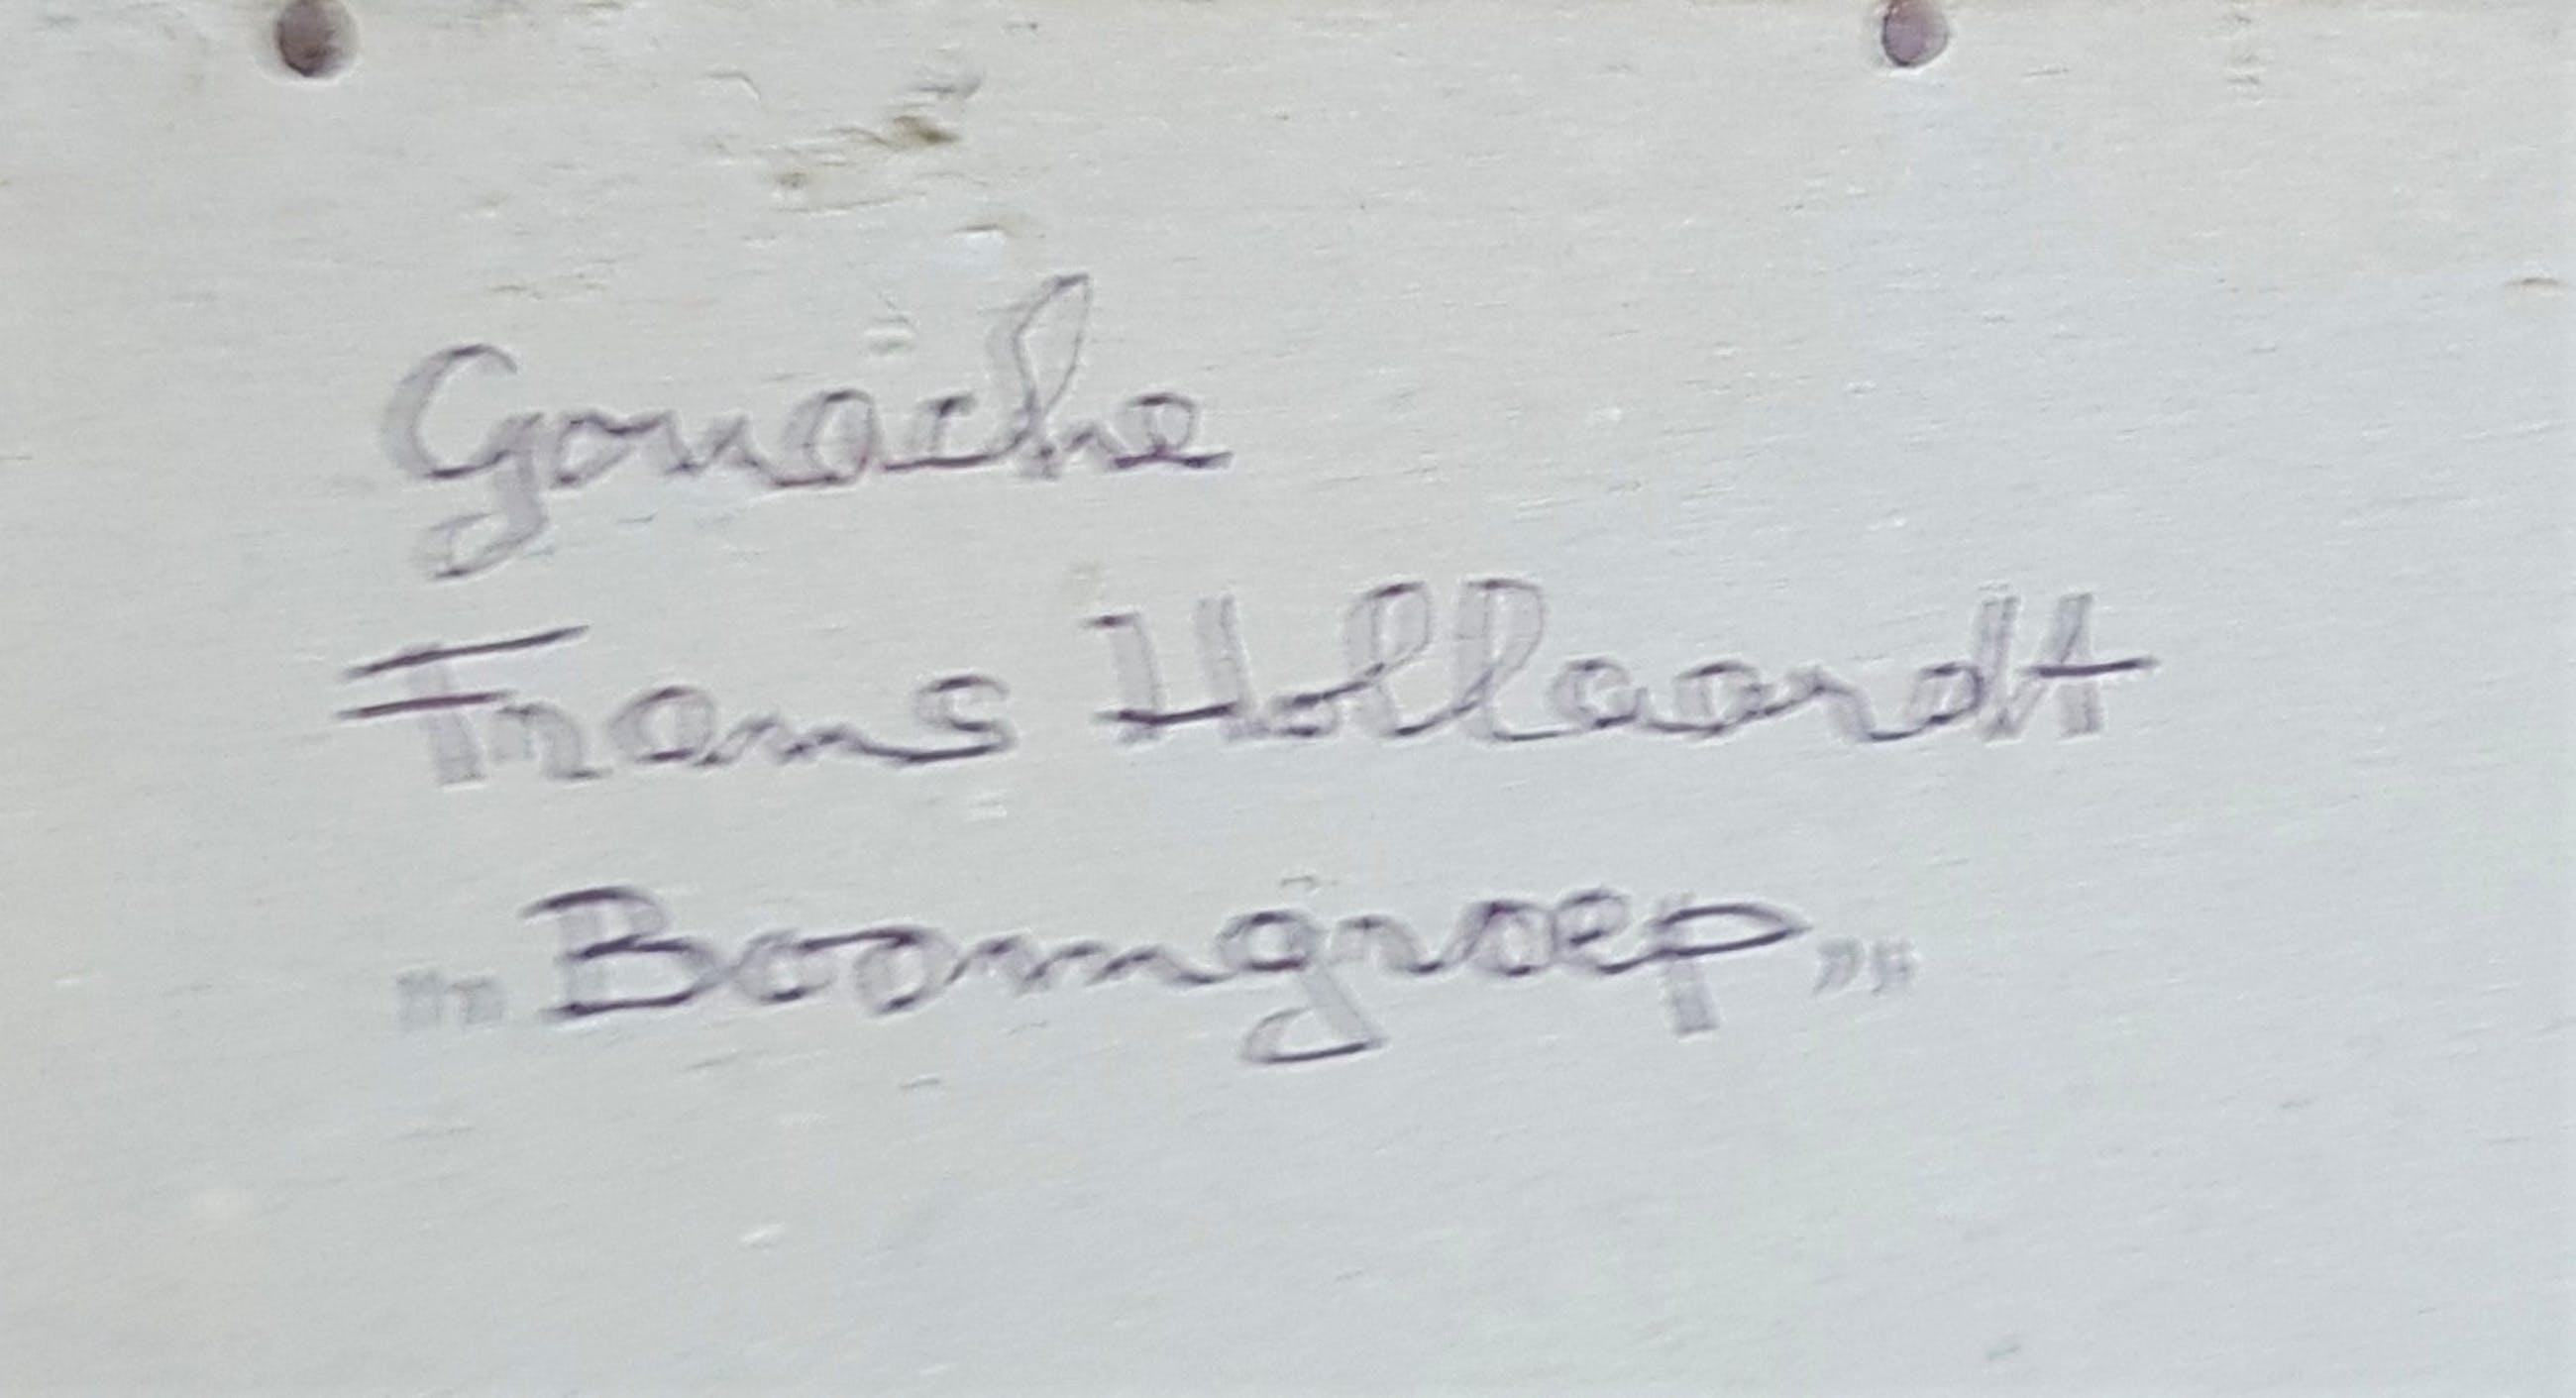 Gouache
Frans Hollaardt
„Boomgroep”